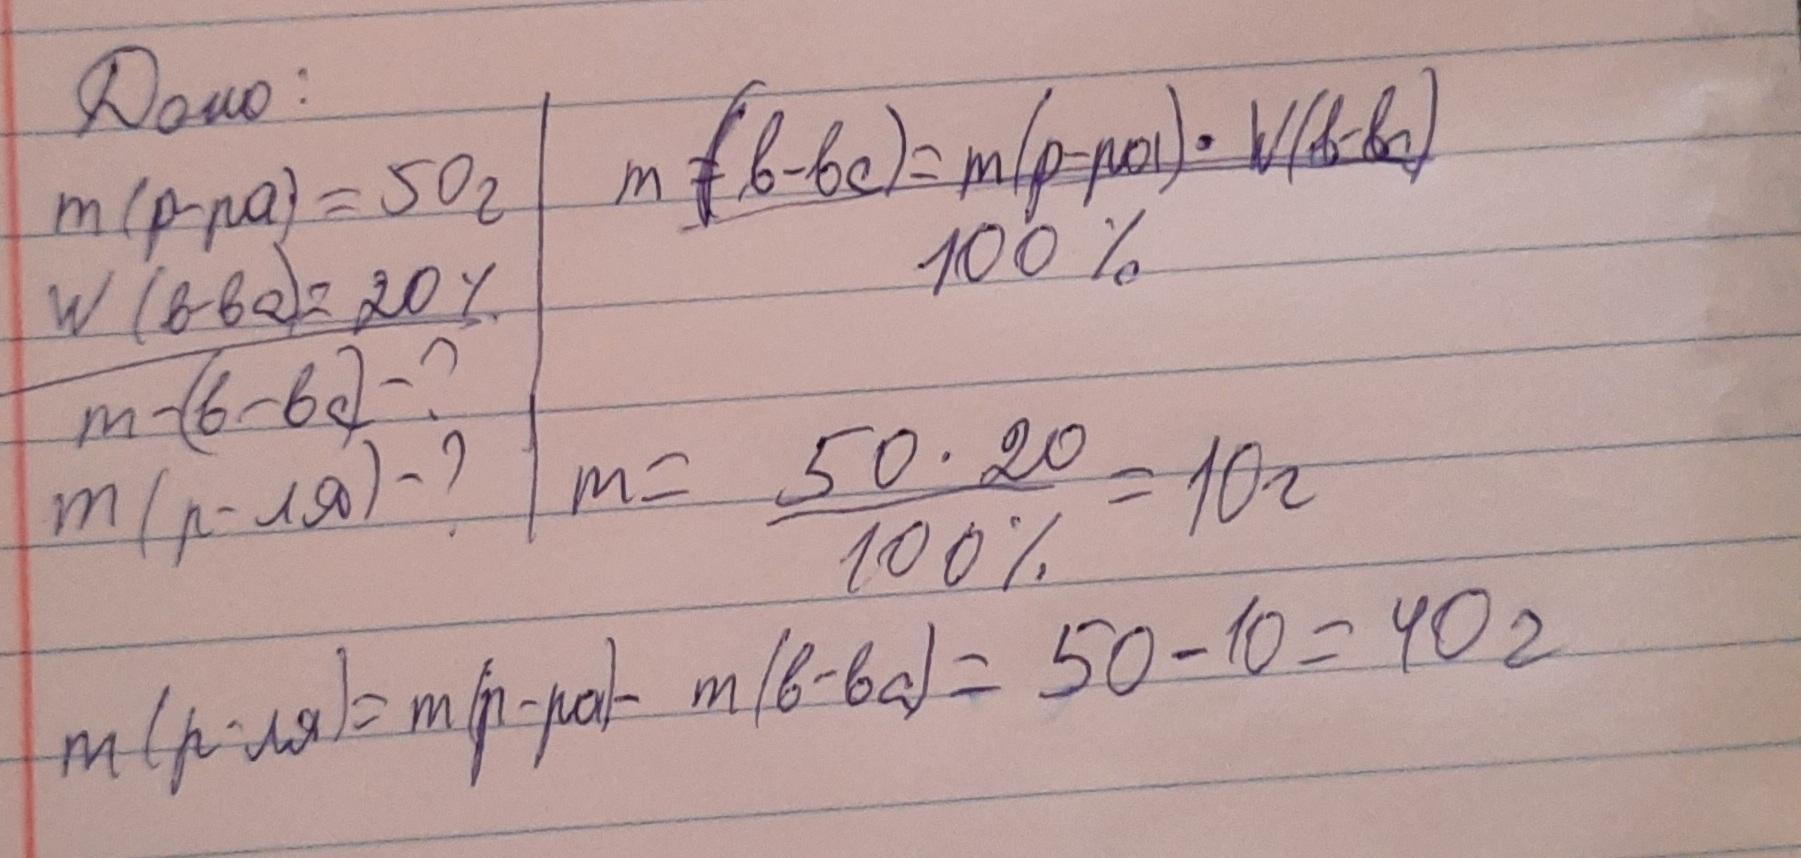 Дано:
m(р-ра) = 50г
W(в-ва) = 20%
m-(в-ва) - ?
m(р-ля) - ?
m (в-ва) = m(р-ра) · W(в-ва)
100%
m = 50 · 20 = 10г
100%
m(р-ля) = m(р-ра) - m(в-ва) = 50 - 10 = 40г